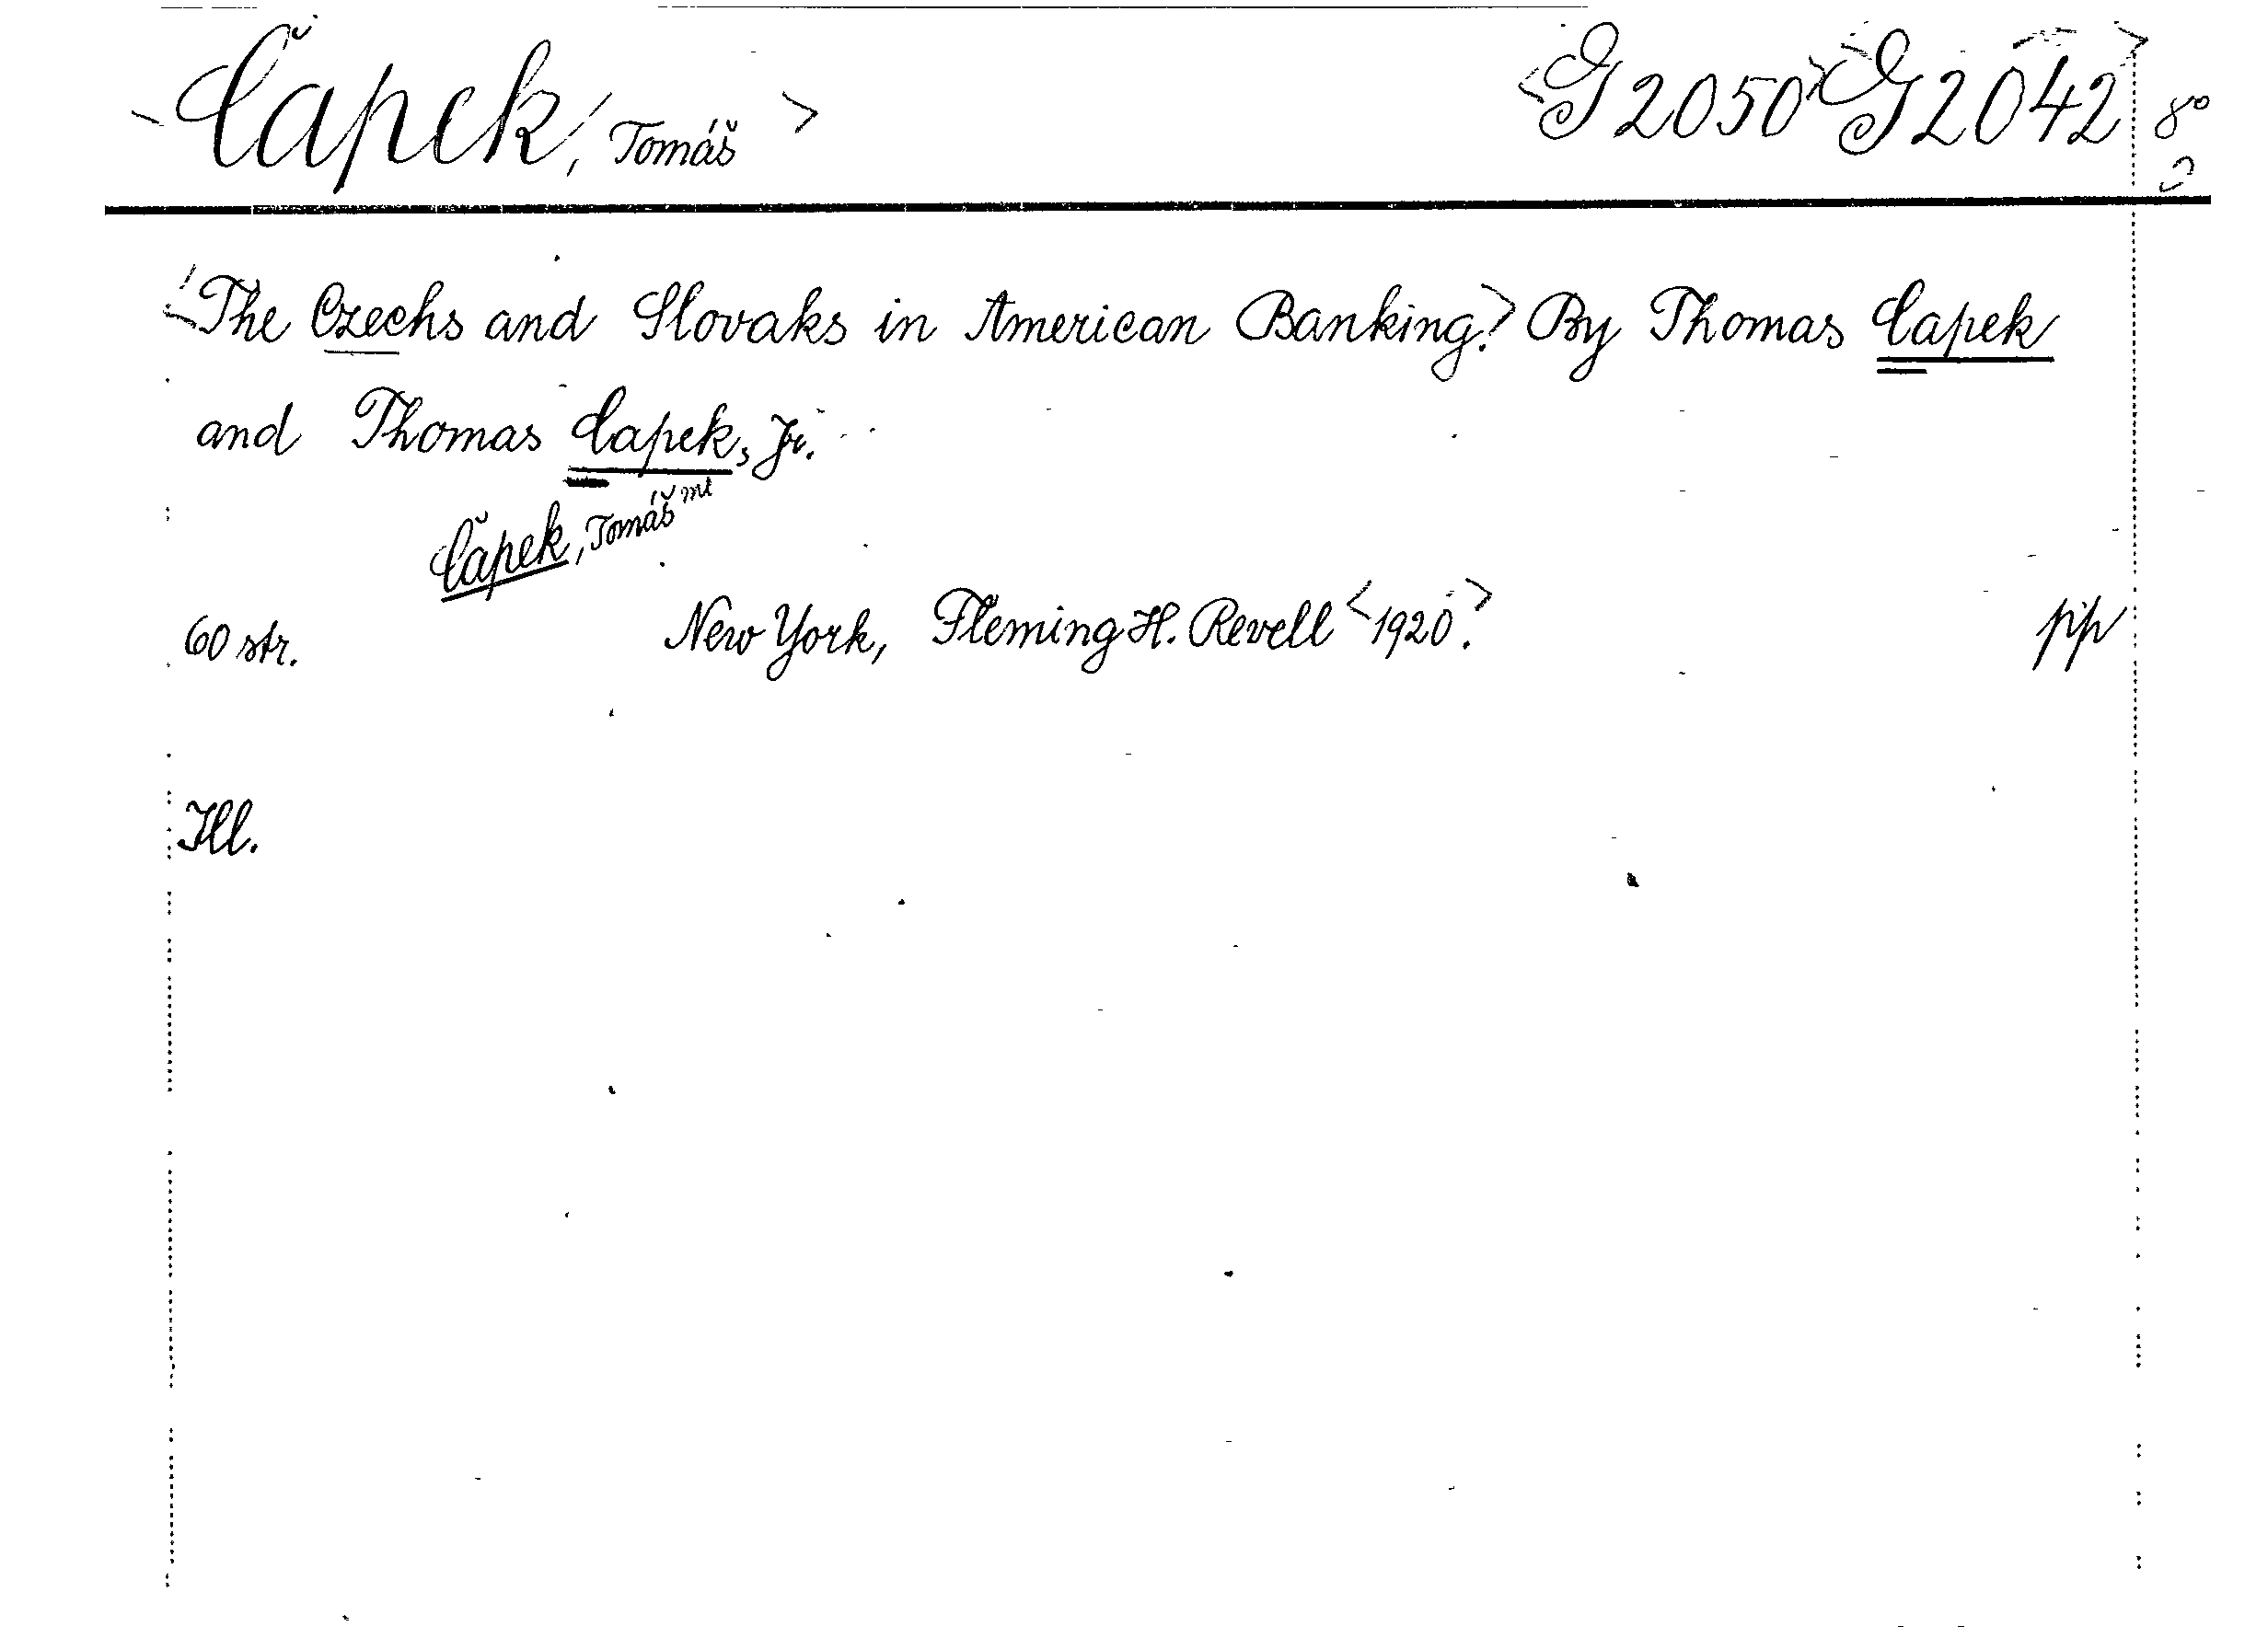 <Čapek, Tomáš> <G 2050> G 2042 8°
<The Czechs and Slovaks in American Banking.> By Thomas Capek
and Thomas Capek, Jr.
Čapek, Tomáš ml
60 str. New York, Fleming H. Revell <1920.> pp
Ill.